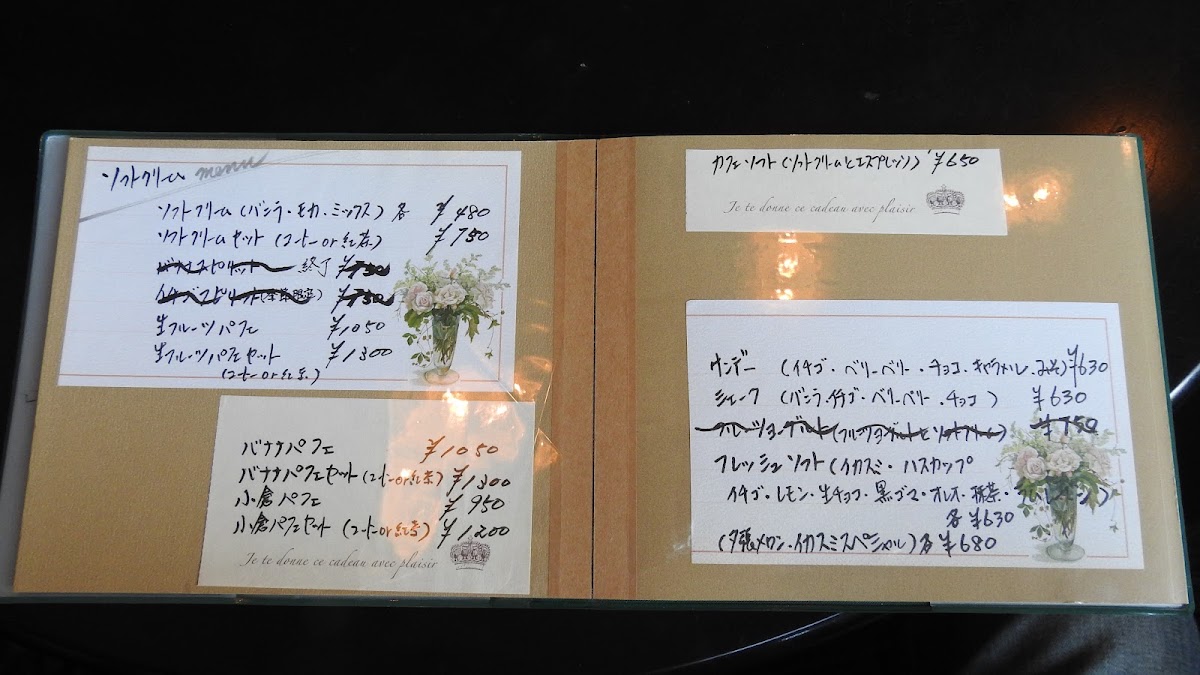 ソフトクリーム menu
ソフトクリーム(バニラ・モカ・ミックス)各 ¥480
ソフトクリームセット(コーヒーor紅茶) ¥750
終了 ¥750
¥750
生フルーツパフェ ¥1050
生フルーツパフェセット ¥1300
(コーヒーor紅茶)
バナナパフェ ¥1050
バナナパフェセット(コーヒーor紅茶) ¥1300
小倉パフェ ¥950
小倉パフェセット(コーヒーor紅茶) ¥1200
Je te donne ce cadeau avec plaisir
カフェソフト(ソフトクリームとエスプレッソ) ¥650
Je te donne ce cadeau avec plaisir
サンデー (イチゴ・ベリーベリー・チョコ・キャラメル・みそ)¥630
シェーク (バニラ・イチゴ・ベリーベリー・チョコ) ¥630
フルーツヨーグルト(フルーツヨーグルトとソフトクリーム) ¥750
フレッシュソフト(イカスミ・ハスカップ
イチゴ・レモン・生チョコ・黒ゴマ・オレオ・抹茶・ラムレーズン)
各 ¥630
(夕張メロン・イカスミスペシャル)各 ¥680